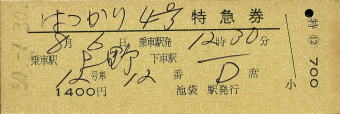 はつかり4号 特急券
8月6日 乗車駅発 12時30分
乗車駅 上野 下車駅
12号車 12番 D席
1400円 池袋駅発行
特 ⑫ 700
小
50.-7.30